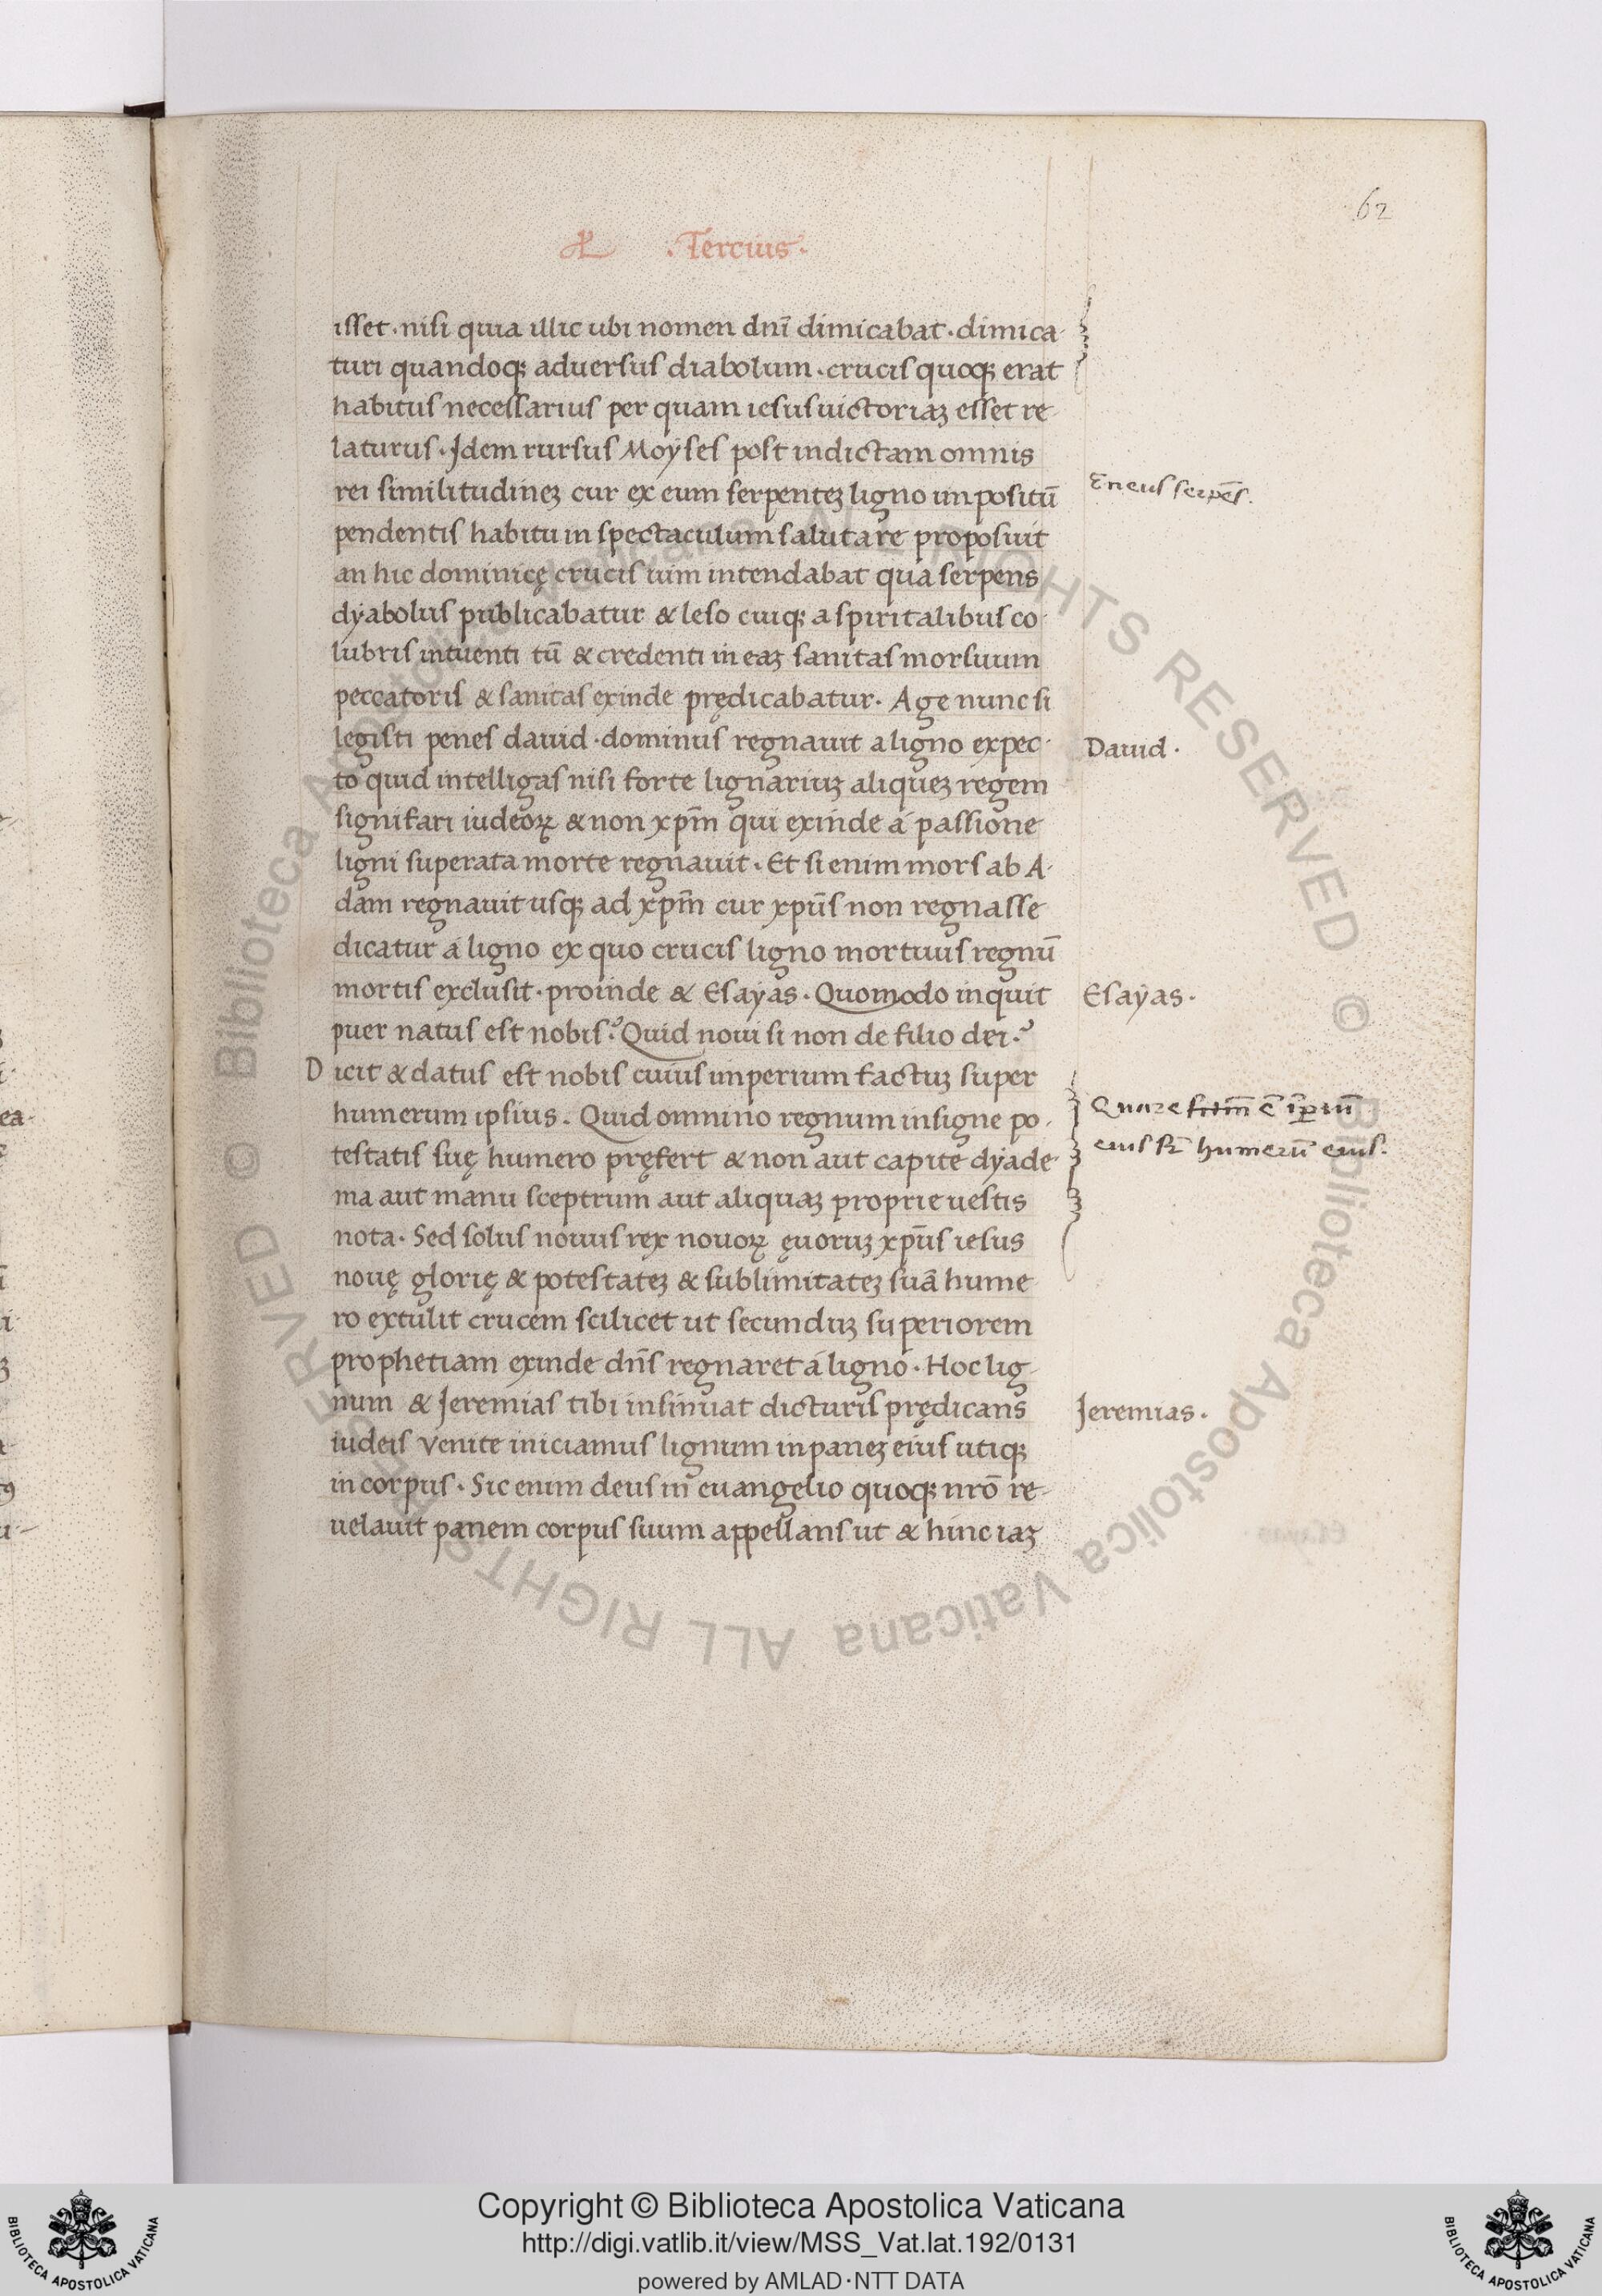 62
.Tercius.
isset. nisi quia illic ubi nomen dnī dimicabat. dimica-
turi quandoqȝ aduersus diabolum. crucis quoqȝ erat
habitus necessarius per quam iesus uictoriaȝ esset re-
laturus. Idem rursus Moÿses post indictam omnis
rei similitudineȝ cur ex eum serpenteȝ ligno impositū
pendentis habitu in spectaculum salutare proposuit
an hic dominicę crucis uim intendabat qua serpens
dÿabolus publicabatur & leso cuiqȝ a spiritalibus co-
lubris intuenti tū & credenti in eaȝ sanitas morsuum
peccatoris & sanitas exinde prędicabatur. Age nunc si
legisti penes dauid. dominus regnauit a ligno expec-
to quid intelligas nisi forte lignariuȝ aliqueȝ regem
signifari iudeoꝝ & non xp̄m qui exinde á passione
ligni superata morte regnauit. Et si enim mors ab A-
dam regnauit usqȝ ad xp̄m cur xpūs non regnasse
dicatur á ligno ex quo crucis ligno mortuus regnū
mortis exclusit. proinde & Esaÿas. Quomodo inquit
puer natus est nobis? Quid noui si non de filio dei?
Dicit & datus est nobis cuius imperium factuȝ super
humerum ipsius. Quid omnino regnum insigne po-
testatis suę humero pręfert & non aut capite dÿade-
ma aut manu sceptrum aut aliquaȝ proprie uestis
nota. Sed solus nouus rex nouoꝝ ęuoruȝ xpūs iesus
nouę glorię & potestateȝ & sublimitateȝ suā hume
ro extulit crucem scilicet ut secunduȝ superiorem
prophetiam exinde dn̄s regnaret á ligno. Hoc lig-
num & Jeremias tibi insinuat dicturis prędicans
iudeis venite iniciamus lignum in paneȝ eius utiqȝ
in corpus. Sic enim deus in euangelio quoqȝ nr̄o re-
uelauit panem corpus suum appellans ut & hinc iaȝ
Eneus serpēs.
Dauid.
Esaÿas.
Quare
eius humerū eius.
Jeremias.
Copyright © Biblioteca Apostolica Vaticana
http://digi.vatlib.it/view/MSS_Vat.lat.192/0131
powered by AMLAD·NTT DATA
BIBLIOTECA APOSTOLICA VATICANA
BIBLIOTECA APOSTOLICA VATICANA
© Biblioteca Apostolica Vaticana ALL RIGHTS RESERVED © Biblioteca Apostolica Vaticana ALL RIGHTS RESERVED